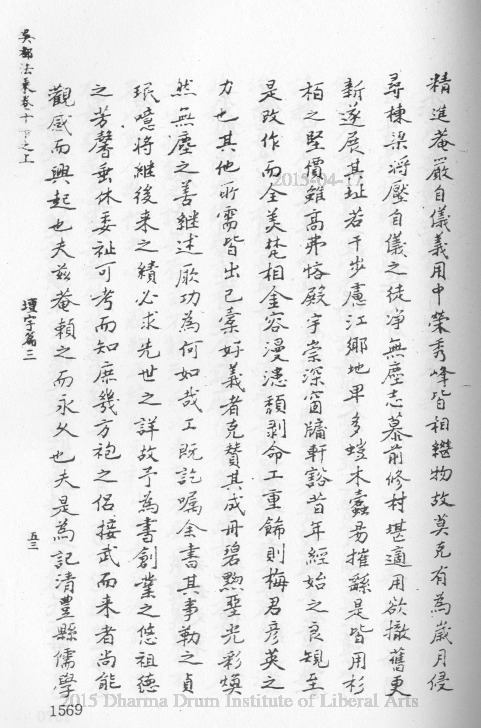 精進菴嚴自儀義用中榮秀峰皆相繼物故莫克有為歲月侵
尋棟梁將壓自儀之徒净無塵志慕前修材堪適用欲撤舊更
新遂展其址若干步慮江鄉地卑多螘木蠹易摧繇是皆用杉
栢之堅價雖高弗恡殿宇崇深窗牖軒豁昔年經始之良規至
是改作而全美梵相金容漫漶頹剥命工重飾則梅君彥英之
力也其他所需皆出己橐好義者克贊其成丹碧黝堊光彩煥
然無塵之善繼述厥功為何如哉工既訖囑余書其事勒之貞
珉噫將繼後来之績必求先世之詳故予為書創業之悠祖德
之芳馨垂休委祉可考而知庶幾方袍之侣接武而来者尚能
觀感而興起也夫兹菴賴之而永久也夫是為記清豊縣儒學
吳都法乗卷十下之上
壇宇篇三
五三
1569
2015-04-17
2015 Dharma Drum Institute of Liberal Arts